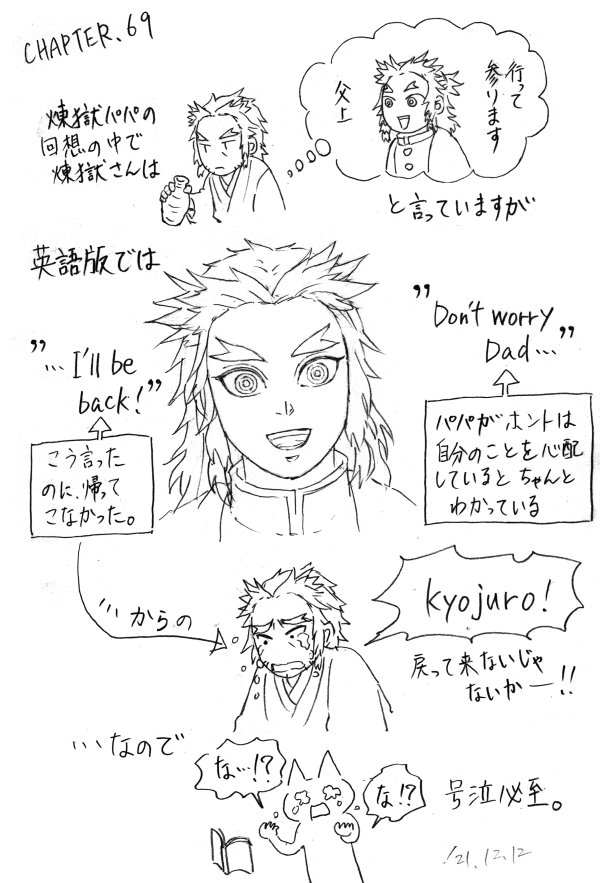 CHAPTER.69
煉獄パパの
回想の中で
煉獄さんは
行って
参ります
父上
と言っていますが
英語版では
"Don't worry
Dad..."
"...I'll be
back!"
パパがホントは
自分のことを心配
しているとちゃんと
わかっている
こう言った
のに、帰って
こなかった。
…からの
kyojuro!
戻って来ないじゃ
ないかー!!
…なので
な…!?
な!?
号泣必至。
'21.12.12